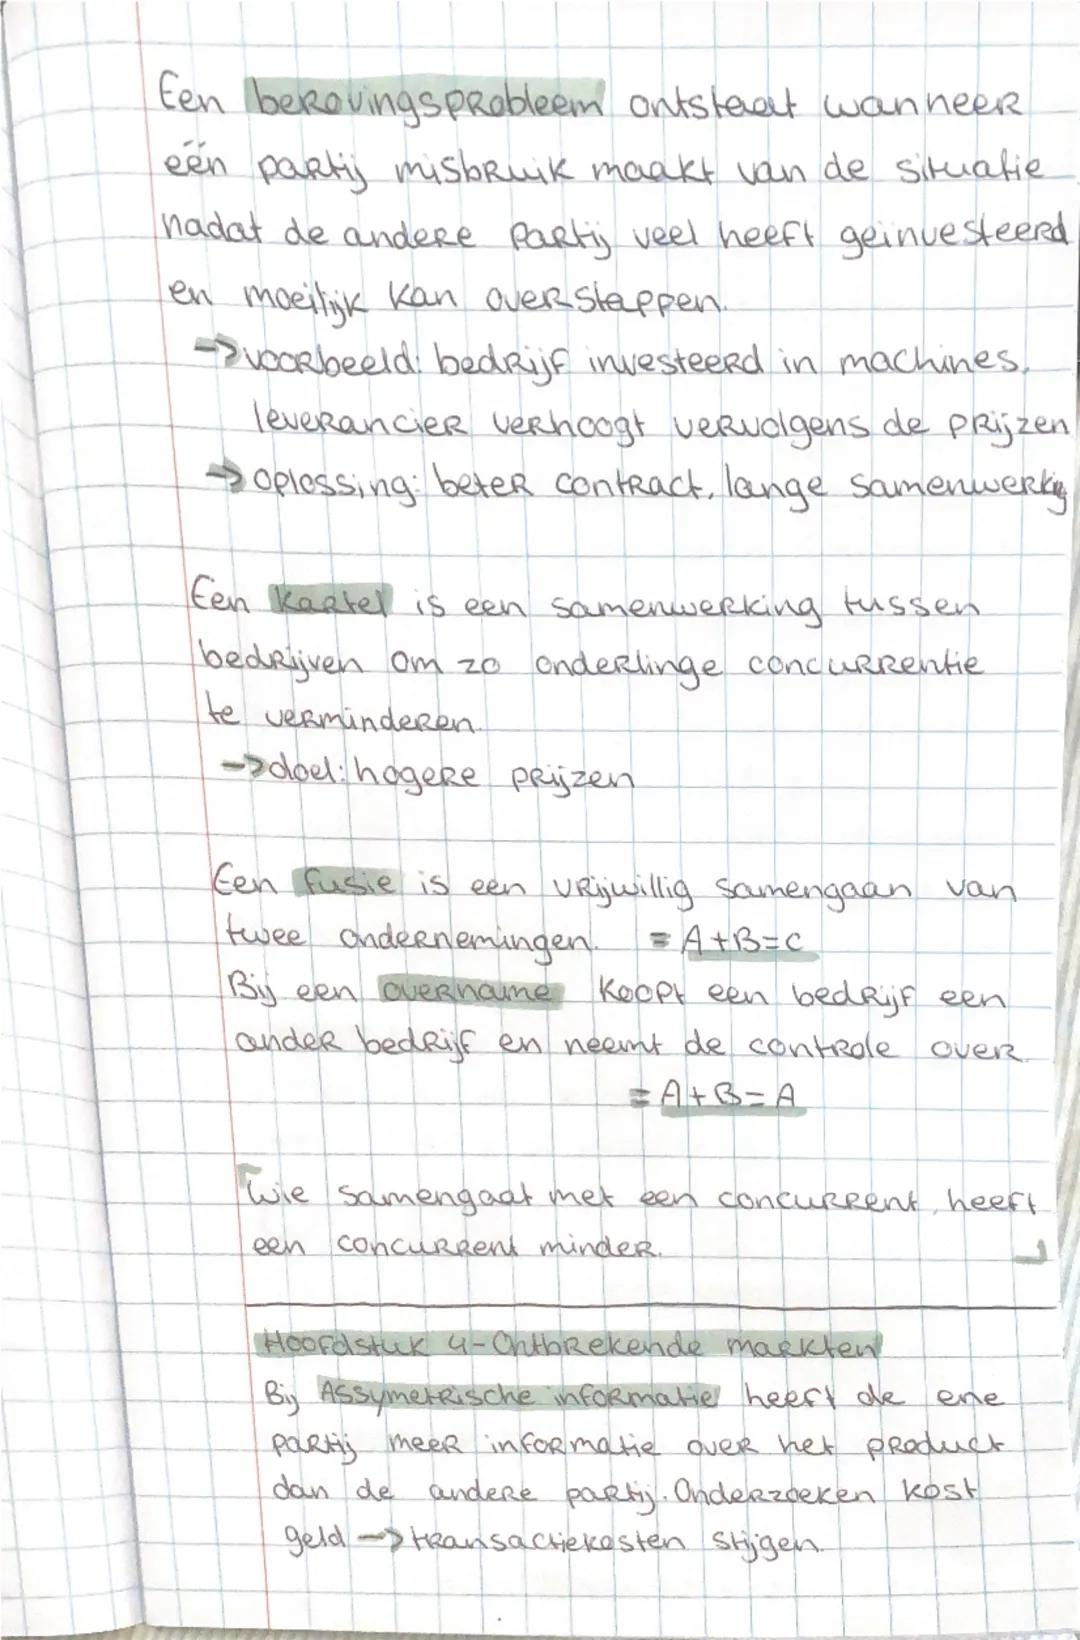 Een berovingsprobleem ontstaat wanneer
één partij misbruik maakt van de situatie
nadat de andere partij veel heeft geinvesteerd
en moeilijk kan overstappen.
-> voorbeeld: bedrijf investeerd in machines,
leverancier verhoogt vervolgens de prijzen
-> oplossing: beter contract, lange samenwerking
Een kartel is een samenwerking tussen
bedrijven om zo onderlinge concurrentie
te verminderen.
-> doel: hogere prijzen
Een fusie is een vrijwillig samengaan van
twee ondernemingen. = A+B=C
Bij een overname koopt een bedrijf een
ander bedrijf en neemt de controle over.
= A+B=A
Wie samengaat met een concurrent, heeft
een concurrent minder.
Hoofdstuk 4-Ontbrekende markten
Bij Assymetrische informatie heeft de ene
partij meer informatie over het product
dan de andere partij. Onderzoeken kost
geld -> transactiekosten stijgen.